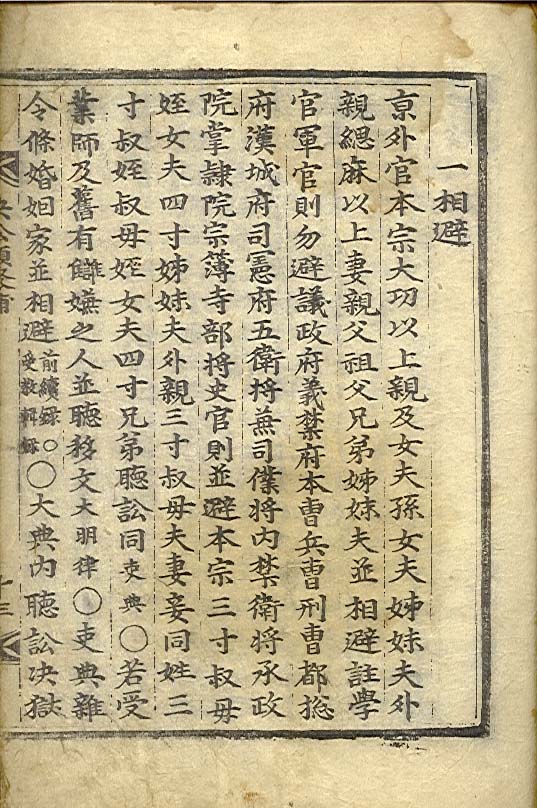 一相避
京外官本宗大功以上親及女夫孫女夫姊妹夫外
親緦麻以上妻親父祖父兄弟姊妹夫並相避註學
官軍官則勿避議政府義禁府本曹兵曹刑曹都捴
府漢城府司憲府五衛將蒹司僕將內禁衛將承政
院掌隷院宗簿寺部將史官則並避本宗三寸叔母
姪女夫四寸姊妹夫外親三寸叔母夫妻妾同姓三
寸叔姪叔母姪女夫四寸兄弟聽訟同吏典〇若受
業師及舊有讎嫌之人並聽移文大明律〇吏典雜
令條婚姻家並相避前續錄〇受敎輯錄〇大典內聽訟决獄
十三